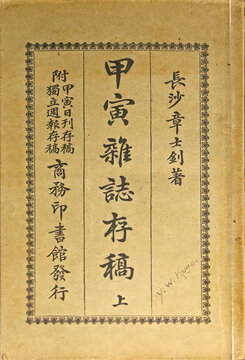 長沙章士釗著
甲寅雜誌存稿 上
附甲寅日刊存稿
獨立週報存稿
商務印書館發行
Y. W. Kung